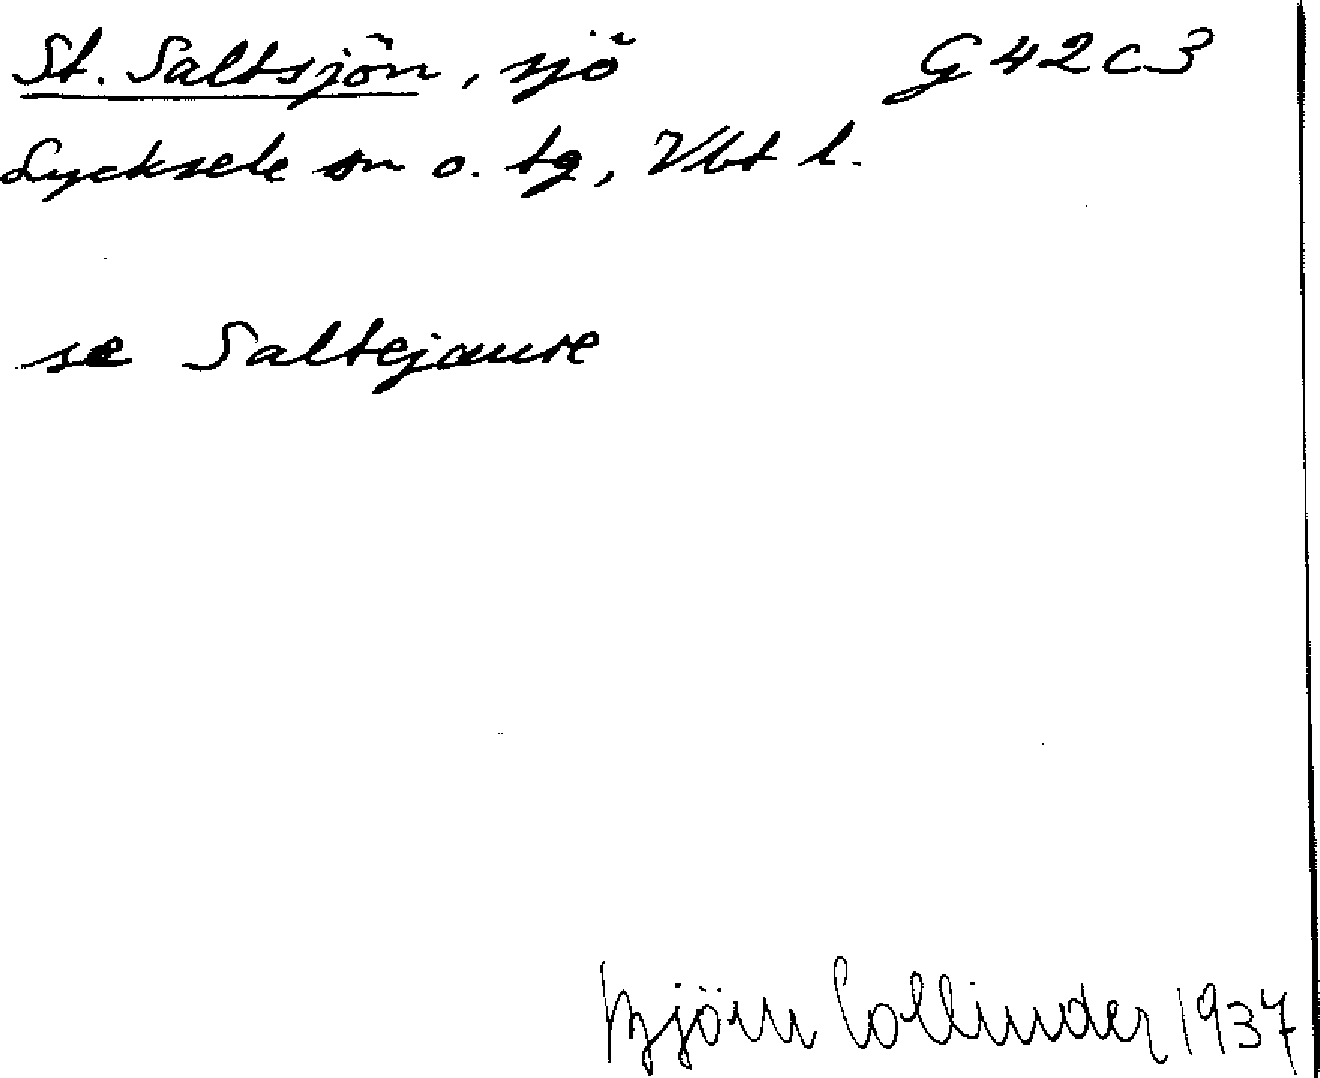 St. Saltsjön, sjö G42c3
Lycksele sn o. tg, Vbt l.
se Saltejaure
Björn Collinder 1937